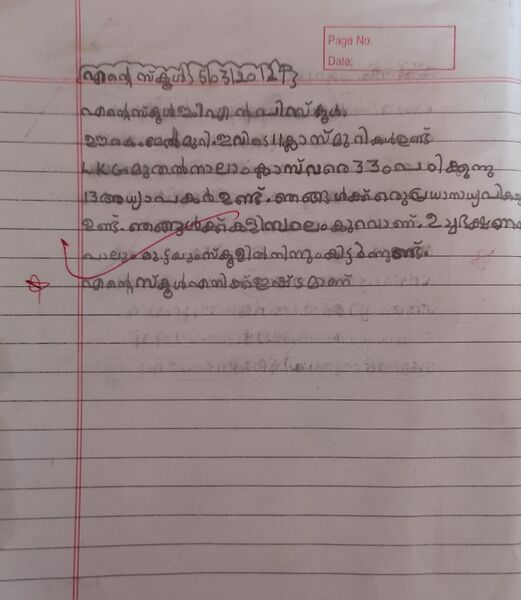 Page No.
Date:
എന്റെ സ്കൂൾ
എന്റെ സ്കൂൾ ജി എൽ പി സ്കൂൾ
ഊരകം മേൽമുറി. ഇവിടെ 11 ക്ലാസ് മുറികൾ ഉണ്ട്
LKG മുതൽ നാലാം ക്ലാസ് വരെ 33 പഠിക്കുന്നു
13 അധ്യാപകർ ഉണ്ട്. ഞങ്ങൾക്ക് ഒരു
ഉണ്ട്. ഞങ്ങൾക്ക് കളിസ്ഥലം കുറവാണ്. ഉച്ചഭക്ഷണം
പാലും മുട്ടയും സ്കൂളിൽ നിന്നും കിട്ടാറുണ്ട്.
എന്റെ സ്കൂൾ എനിക്ക് ഇഷ്ടമാണ്